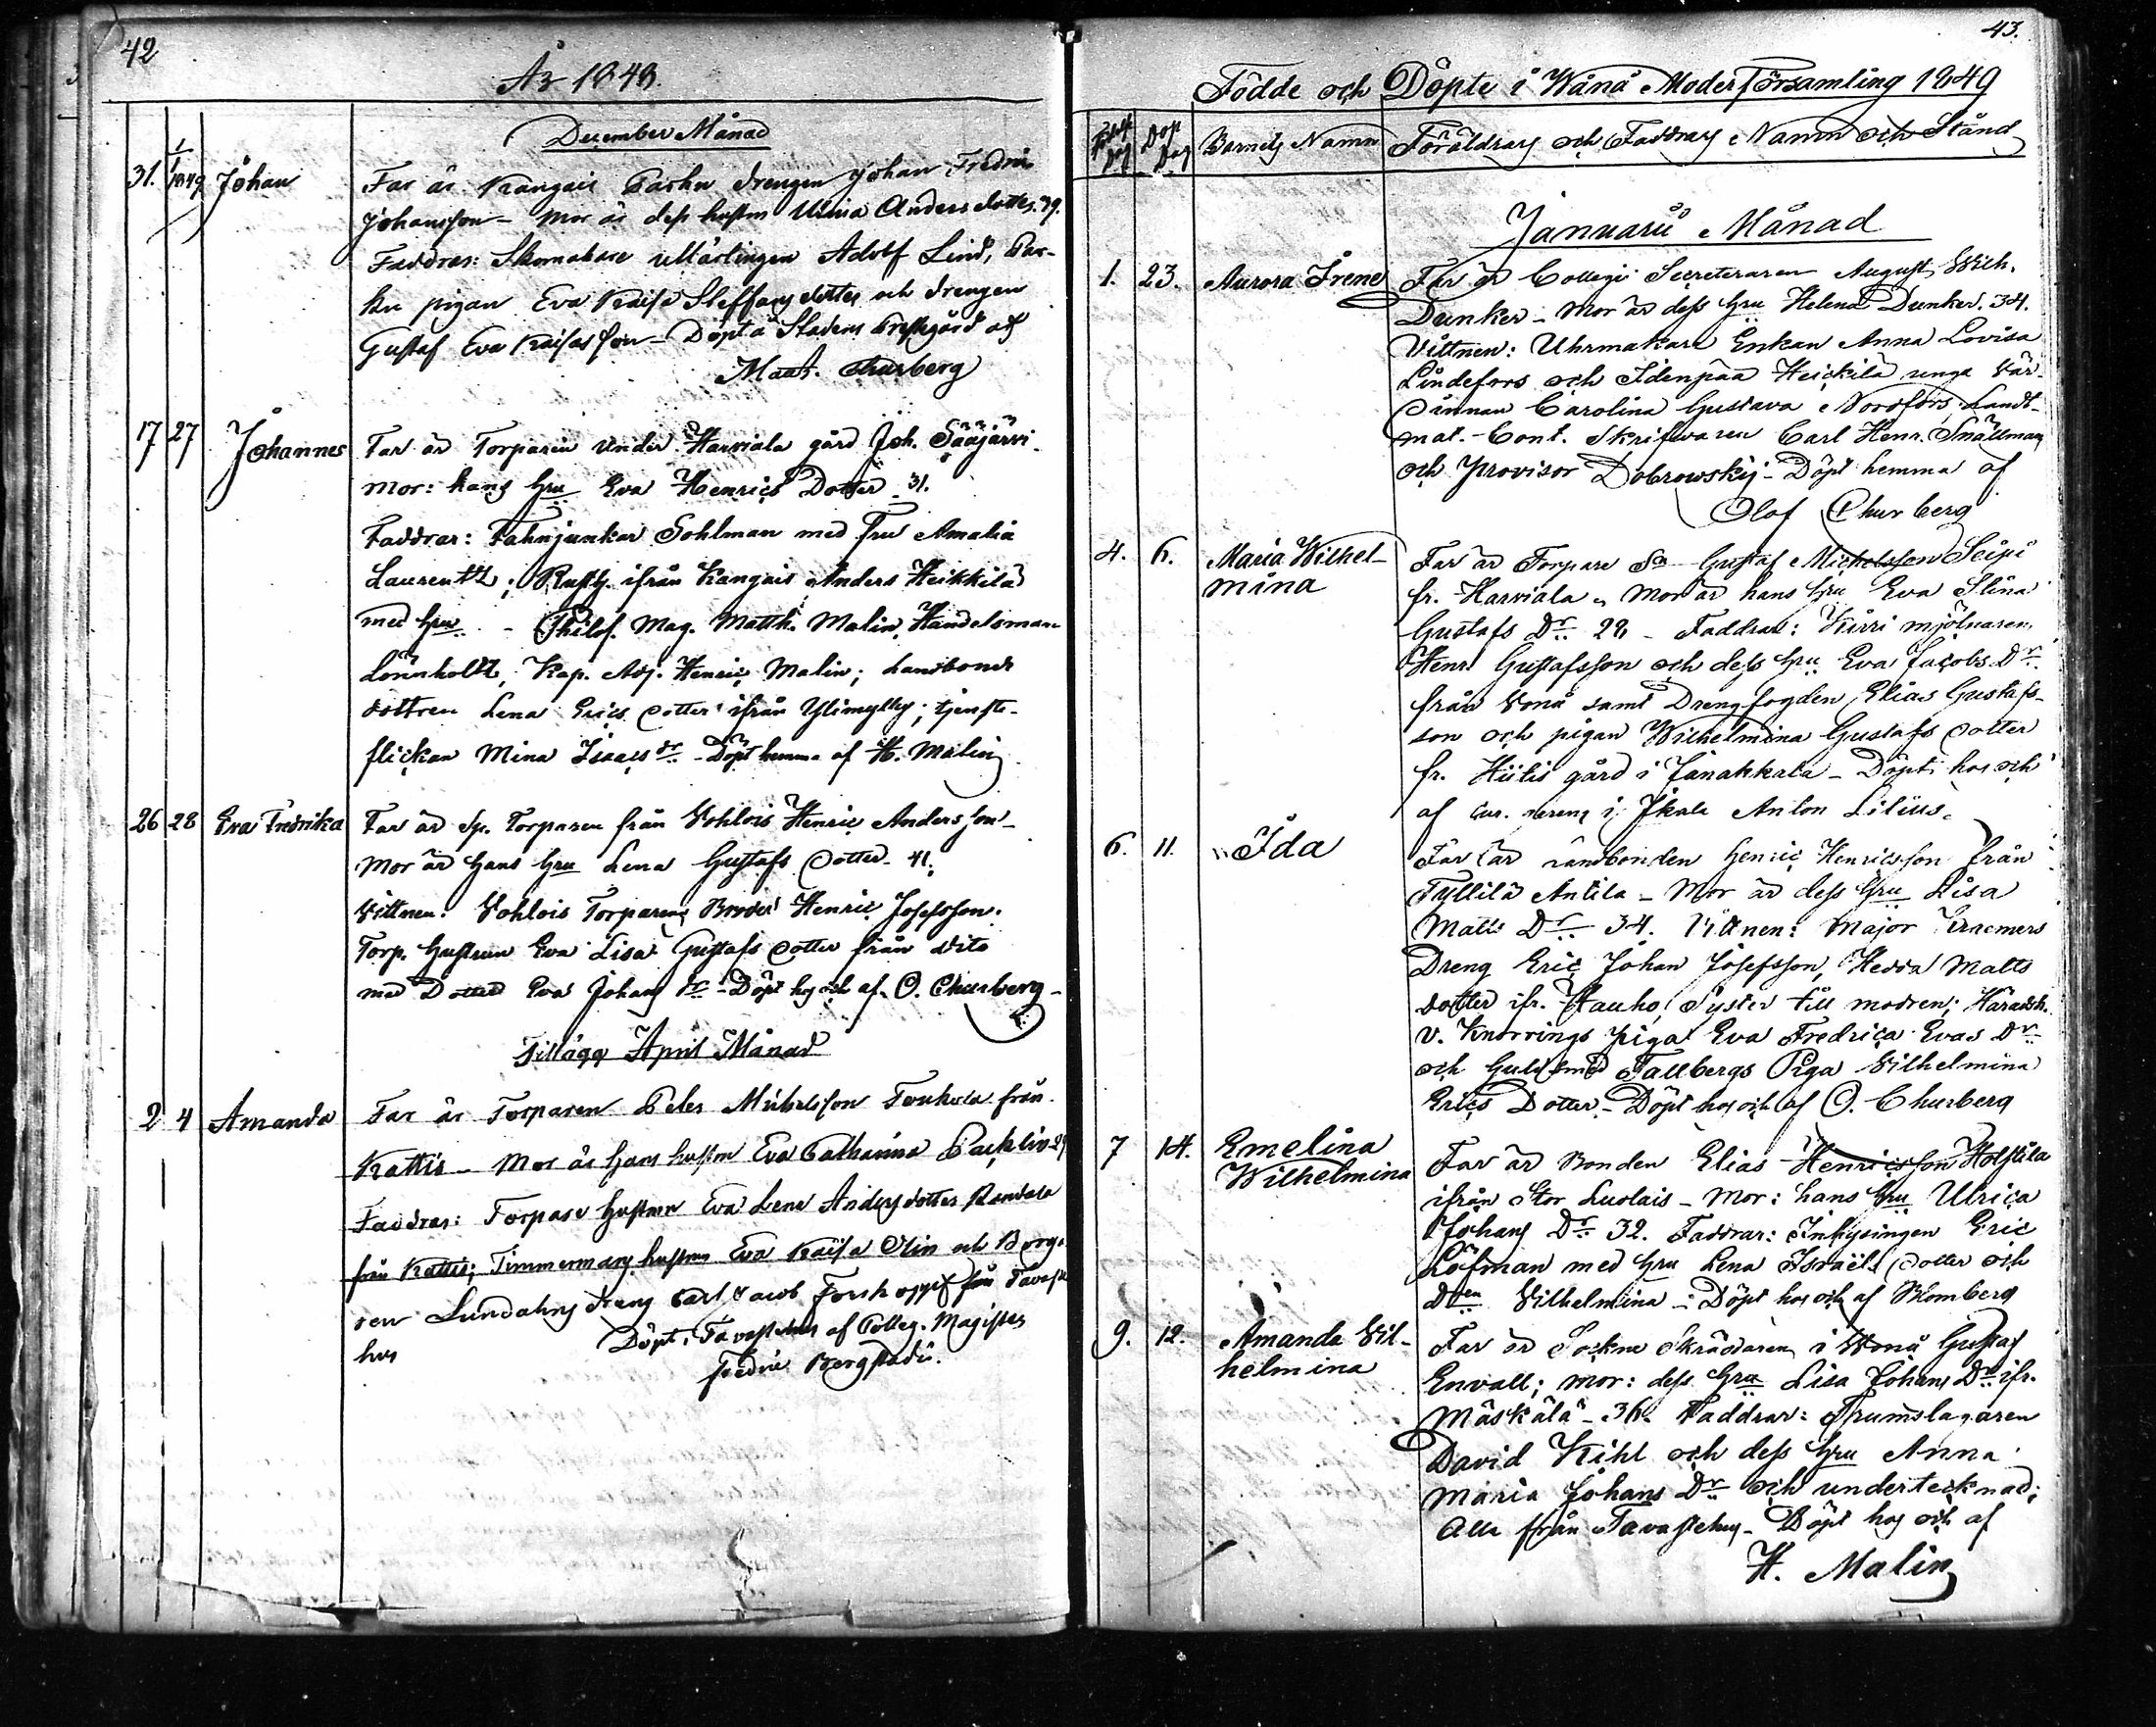 42
År 1848.
December Månad
31. 1/1 1849 Johan Far är Kangais Parhu drengen Johan Fredric
Johansson – Mor är dess hustru Ulrica Anders dotter. 39.
Faddrar: Skomakare Lärlingen Adolf Lind, Par-
hu pigan Eva Kaisa Steffans dotter och drengen
Gustaf Eva Kaisas son – Döpt å Stadens Prestgård af
Churberg
17 27 Johannes Far är Torparen under Harviala gård Joh. Sääjärvi.
Mor: hans Hru Eva Henrics Dotter. 31.
Faddrar: Fahnjunkar Sohlman med Fru Amalia
Laurentz; Rusth. ifrån Kangais Anders Heikkilä
med Hru – Philos. Mag. Matth. Malin, Handelsman
Lönnholtz, Kap. Adj. Henric Malin; Landbonde
dottren Lena Erics dotter ifrån Ylimylly; tjenste-
flickan Mina Isaacs dr. – Döpt hemma af H. Malin
26 28 Eva Fredrika Far är Sp. Torparen från Wohlois Henric Andersson –
Mor är Hans Hru Lena Gustafs Dotter. 41.
Vittnen: Wohlois Torparens Broder Henric Josefsson.
Torp. Hustrun Eva Lisa Gustafs dotter från dito
med Dotter Eva Johans dr – Döpt hos och af O. Churberg –
Tillägg April Månad
2 4 Amanda Far är Torparen Peter Michelsson från
Kattis – Mor är hans hustru Eva Catharina 29
Faddrar: Torpare Hustrun Eva Lena Anders dotter
från Kattis; Timmermans hustrun Eva Kaisa Olin och Borga-
ren Lundahns dreng Carl Jacob från Tavaste
hus Döpt i Tavastehus af Colleg. Magister
Fredric Bergstadi.
43.
Födde och Döpte i Wånå Moderförsamling 1849
Födelse Dag Dop Dag Barnets Namn Föräldrars och Faddrars Namn och Stånd
Januarii Månad
1. 23. Aurora Irene Far är Collegii Secreteraren August Wilh.
Dunker – Mor är dess Hru Helena Dunker. 34.
Vittnen: Uhrmakare Enkan Anna Lovisa
Lindefors och Idenpää Heickilä unga Vär-
dinnan Carolina Gustava Nordfors; Landt-
mat.-Cont. Skrifvaren Carl Henr. Snällman
och Provisor Dobrowskij – Döpt hemma af
Olof Churberg
4. 6. Maria Wilhel-
mina Far är Torpare Gustaf Michelsson Seipi
fr. Harviala. Mor är hans Hru Eva Stina
Gustafs Dr. 28 – Faddrar: mjölnaren
Henr. Gustafsson och dess Hru Eva Jacobs Dr.
från Wonå samt Drengfogden Elias Gustafs-
son och pigan Wilhelmina Gustafs dotter
fr. Hiitis gård i Janakkala – Döpt hos och
af i Anton Lilius.
6. 11. Ida Far är Landbonden Henric Henricsson från
Tyllilä Antila – Mor är dess Hru Lisa
Matts Dr. 34. Vittnen: Major
Dreng Eric Johan Josefsson, Hedda Matts
dotter ifr. Hauho, Syster till modren; Häradsh.
v. Knorrings piga Eva Fredrica Evas Dr
och Guldsmed Fallbergs Piga Wilhelmina
Erics Dotter. – Döpt hos och af O. Churberg
7 14. Emelina
Wilhelmina Far är Bonden Elias Henricsson Holstila
ifrån Stor Luolais – Mor: hans Hru Ulrica
Johans Dr. 32. Faddrar: Inhysingen Eric
Löfman med Hru Lena Israels dotter och
Wilhelmina – Döpt hos och af Blomberg
9. 12. Amanda Vil-
helmina Far är Sockne Skräddaren i Wonå Gustaf
Envall; Mor: dess Hru Lisa Johans Dr. ifr.
Mäskälä – 36. Faddrar: Trumslagaren
David Kihl och dess Hru Anna
Maria Johans Dr. och undertecknad;
Alla från Tavastehus – Döpt hos och af
H. Malin